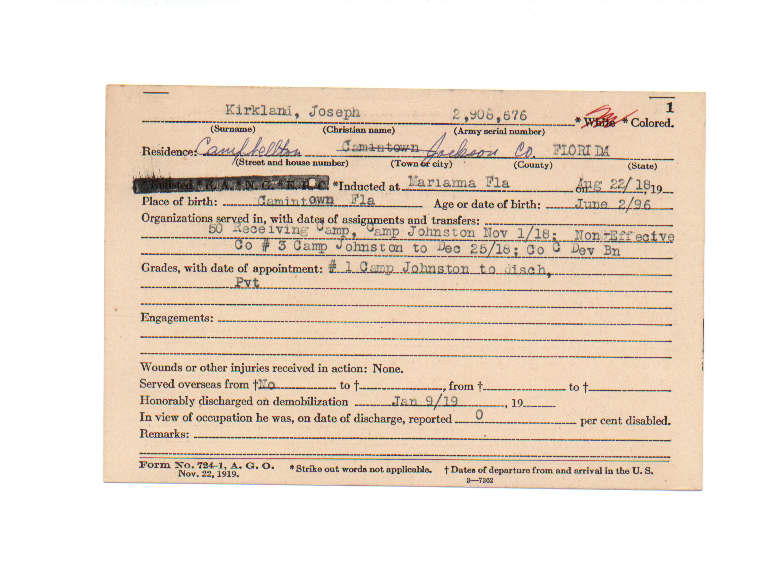 1
Kirkland, Joseph 2,908,676 * White * Colored.
(Surname) (Christian name) (Army serial number)
Residence: Campbellton Camintown Jackson Co. FLORIDA
(Street and house number) (Town or city) (County) (State)
*Inducted at Marianna Fla on Aug 22/18, 19
Place of birth: Camintown Fla Age or date of birth: June 2/96
Organizations served in, with dates of assignments and transfers:
50 Receiving Camp, Camp Johnston Nov 1/18; Non-Effective
Co # 3 Camp Johnston to Dec 25/18; Co C Dev Bn
Grades, with date of appointment: # 1 Camp Johnston to Disch,
Pvt
Engagements:
Wounds or other injuries received in action: None.
Served overseas from † No to †, from † to †
Honorably discharged on demobilization Jan 9/19, 19
In view of occupation he was, on date of discharge, reported 0 per cent disabled.
Remarks:
Form No. 724-1, A. G. O. * Strike out words not applicable. † Dates of departure from and arrival in the U. S.
Nov. 22, 1919.
3—7302